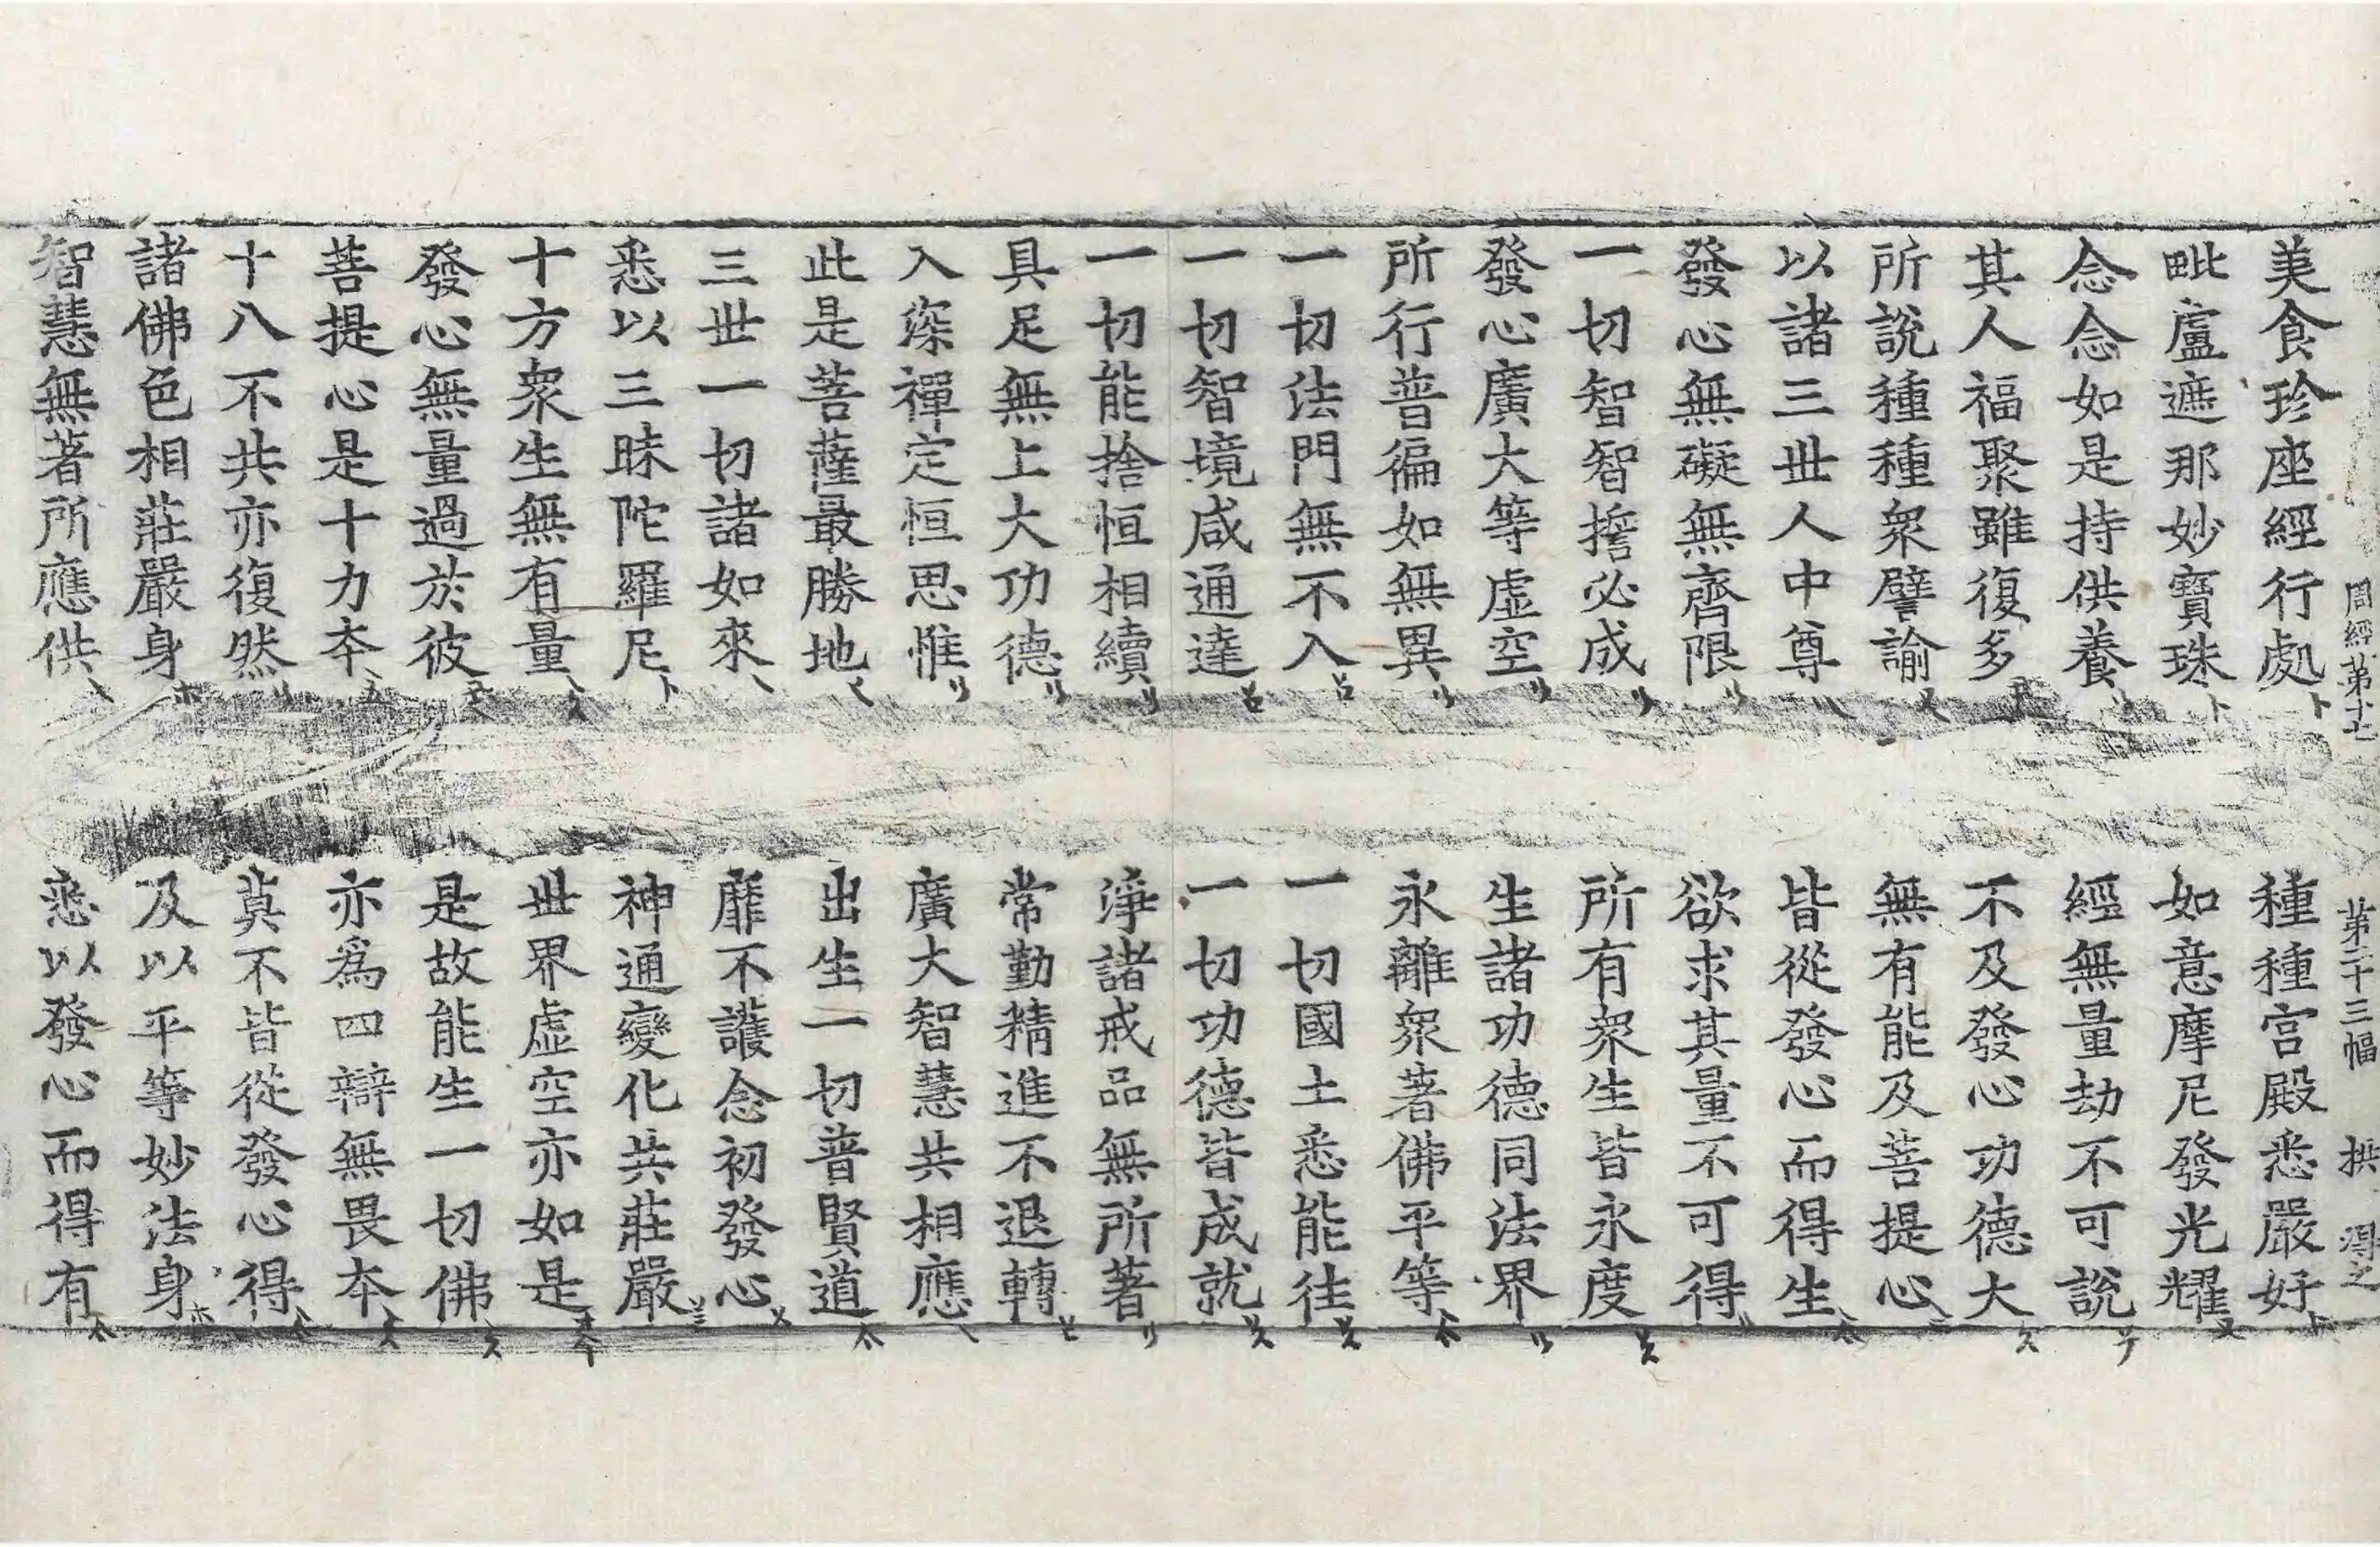 周經第十七 第二十三幅 拱 得之
美食珍座經行處 種種宮殿悉嚴好
毗盧遮那妙寶珠 如意摩尼發光耀
念念如是持供養 經無量劫不可說
其人福聚雖復多 不及發心功德大
所說種種衆譬諭 無有能及菩提心
以諸三世人中尊 皆從發心而得生
發心無礙無齊限 欲求其量不可得
一切智智擔必成 所有衆生皆永度
發心廣大等虛空 生諸功德同法界
所行普徧如無異 永離衆著佛平等
一切法門無不入 一切國土悉能往
一切智境咸通達 一切功德皆成就
一切能捨恒相續 淨諸戒品無所著
具足無上大功德 常勤精進不退轉
入深禪定恒思惟 廣大智慧共相應
此是菩薩最勝地 出生一切普賢道
三世一切諸如來 靡不護念初發心
悉以三昧陀羅尼 神通變化共莊嚴
十方衆生無有量 世界虛空亦如是
發心無量過於彼 是故能生一切佛
菩提心是十力本 亦爲四辯無畏本
十八不共亦復然 莫不皆從發心得
諸佛色相莊嚴身 及以平等妙法身
智慧無著所應供 悉以發心而得有